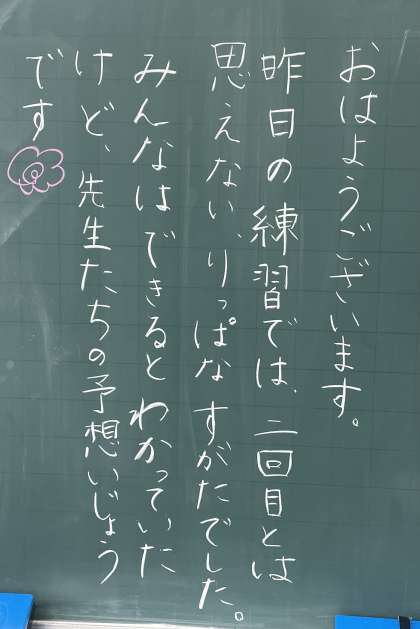 おはようございます。
昨日の練習では、二回目とは
思えない、りっぱなすがたでした。
みんなはできるとわかっていた
けど、先生たちの予想いじょう
です